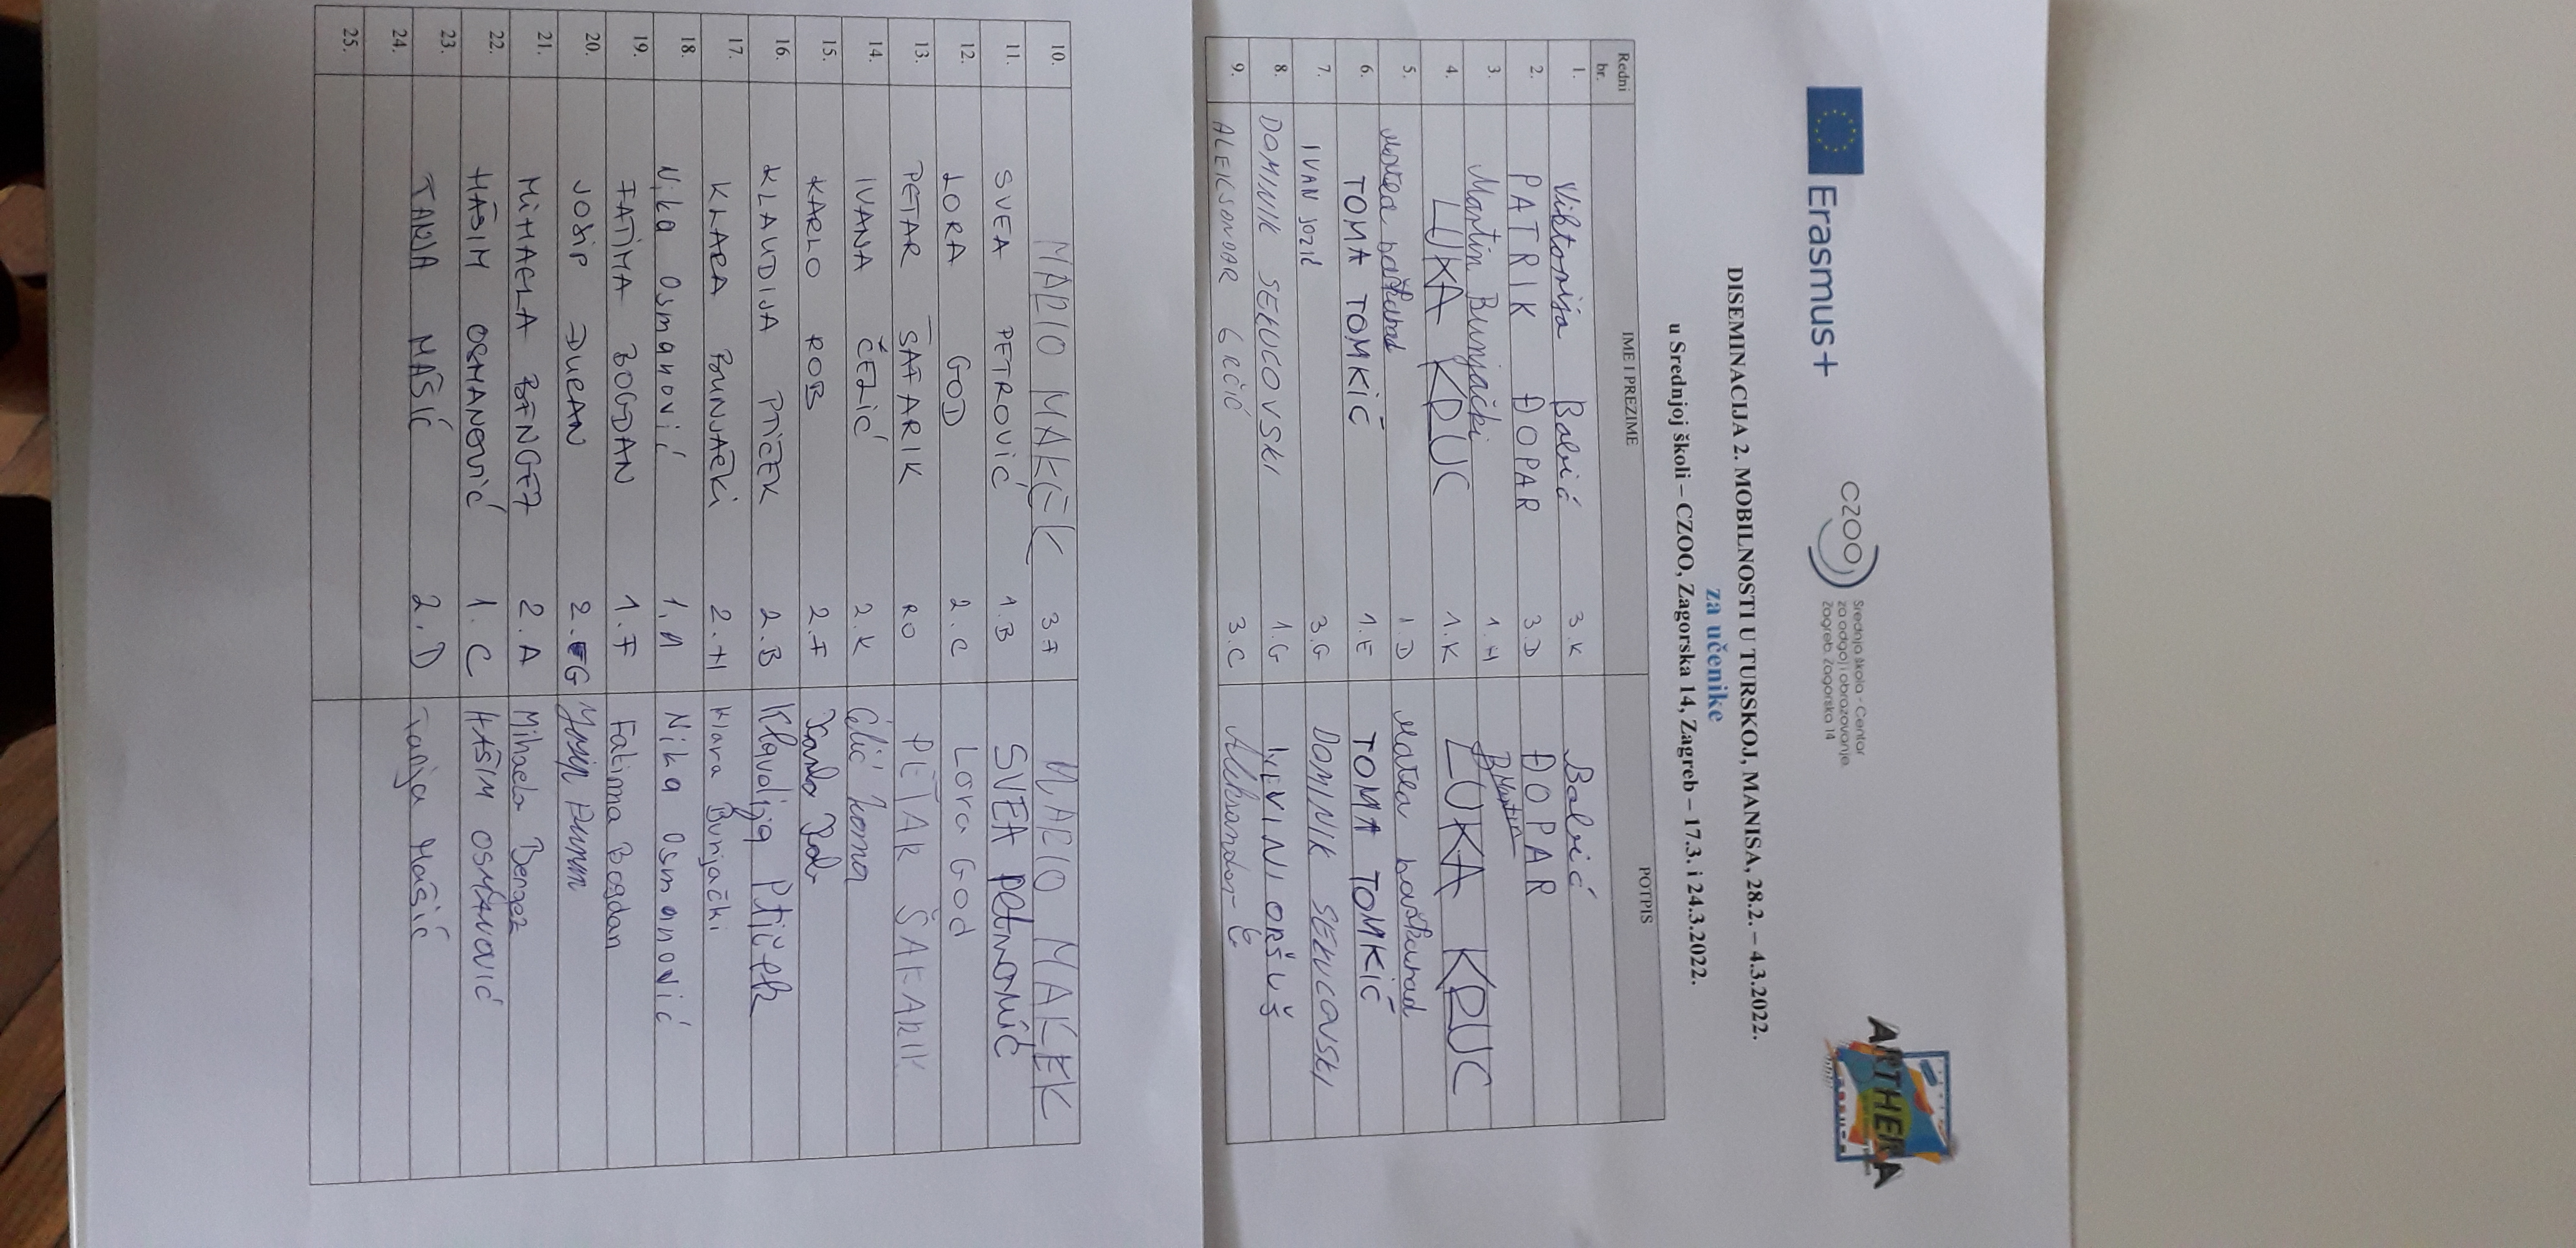 Erasmus+
CZOO
Srednja škola - Centar
za odgoj i obrazovanje
Zagreb, Zagorska 14
ARTHERA
DISEMINACIJA 2. MOBILNOSTI U TURSKOJ, MANISA, 28.2. – 4.3.2022.
za učenike
u Srednjoj školi – CZOO, Zagorska 14, Zagreb – 17.3. i 24.3.2022.
Redni br. IME I PREZIME POTPIS
1. Viktorija Babić 3.K Babić
2. PATRIK ĐOPAR 3.D ĐOPAR
3. Martin Bunjački 1.H
4. LUKA KRUC 1.K LUKA KRUC
5. Matea 1.D Matea
6. TOMA TOMKIĆ 1.E TOMA TOMKIĆ
7. IVAN JOZIĆ 3.G DOMINIK SEKUCOVSKI
8. DOMINIK SEKUCOVSKI 1.G KEVINI ORŠUŠ
9. ALEKSANDAR GRČIĆ 3.C Aleksandar G
10. MARIO MAKEK 3.F MARIO MAKEK
11. SVEA PETROVIĆ 1.B SVEA PETROVIĆ
12. LORA GOD 2.C Lora God
13. PETAR ŠAFARIK RO PETAR ŠAFARIK
14. IVANA ČELIĆ 2.K Čelić Ivana
15. KARLO ROB 2.F Karlo Rob
16. KLAUDIJA PTIČEK 2.B Klaudija Ptiček
17. KLARA BUNJAČKI 2.H Klara Bunjački
18. Nika Osmanović 1.A Nika Osmanović
19. FATIMA BOGDAN 1.F Fatima Bogdan
20. JOSIP DURAN 2.G Josip Duran
21. MIHAELA BENGEZ 2.A Mihaela Bengez
22. HAŠIM OSMANOVIĆ 1.C HAŠIM OSMANOVIĆ
23. TANJA MAŠIĆ 2.D Tanja Mašić
24.
25.